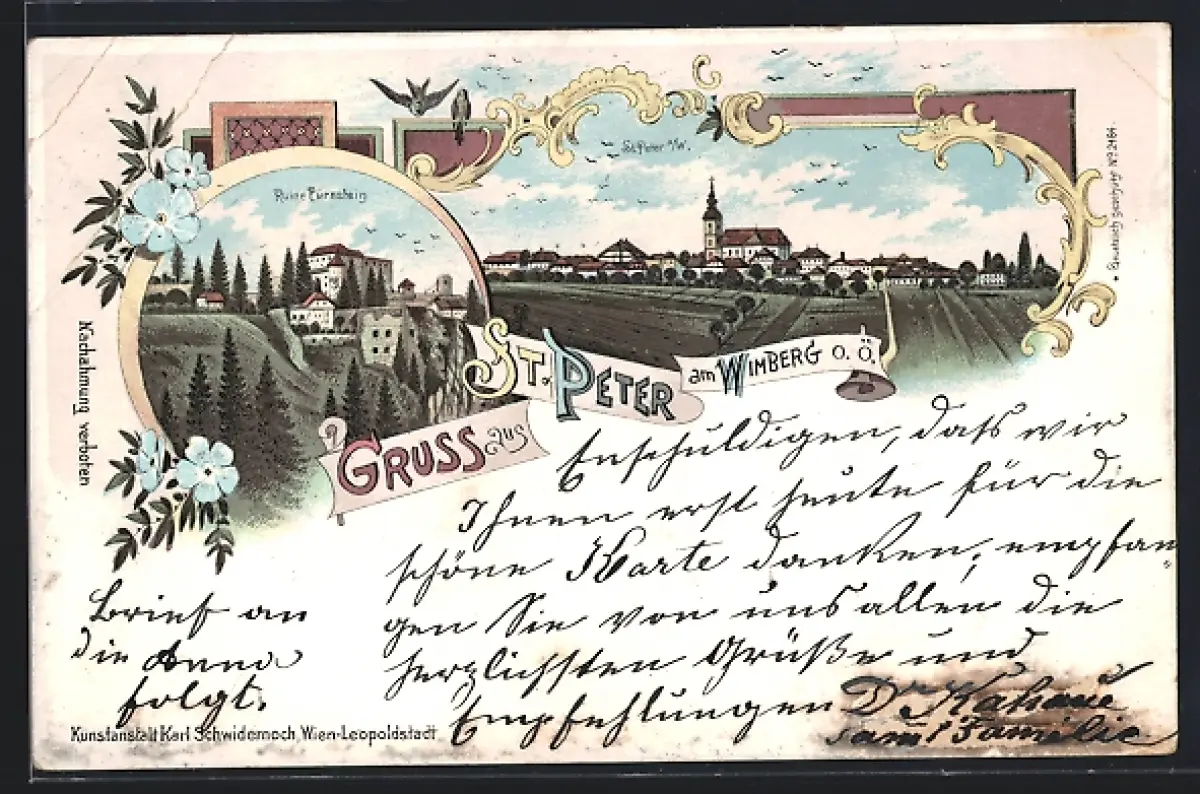 Ruine Pürnstein
St. Peter a/W.
Gesetzlich geschützt No. 2164.
Nachahmung verboten
GRUSS aus
ST. PETER am WIMBERG O. Ö.
Enschuldigen, daß wir
Ihnen erst heute für die
schöne Karte danken, empfan-
gen Sie von uns allen die
herzlichsten Grüße und
Empfehlungen Dr
samt Familie
Brief an
die Anna
folgt.
Kunstanstalt Karl Schwidernoch, Wien-Leopoldstadt